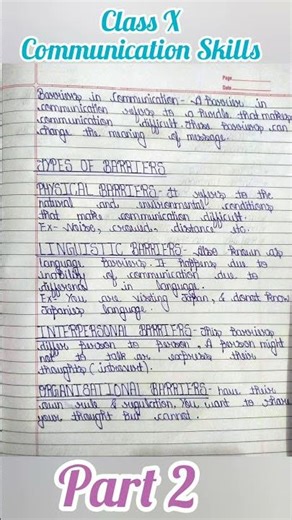 Class X
Communication Skills
Page
Date
Barriers in Communication - A barrier in
communication refers to a hurdle that makes
communication difficult. These barriers can
change the meaning of message.
TYPES OF BARRIERS
PHYSICAL BARRIERS - It refers to the
natural and environmental conditions
that make communication difficult.
Ex - Noise, crowd, distance etc.
LINGUISTIC BARRIERS - Also known as
language barriers. It happens due to
inability of communication due to
difference in language.
Ex - You are visiting Japan, & donot know
Japanies language.
INTERPERSONAL BARRIERS - This barriers
differ person to person. A person might
not to talk or express their
thoughts (introvert).
ORGANISATIONAL BARRIERS - have their
own rule & regulation. You want to share
your thought but cannot.
Part 2